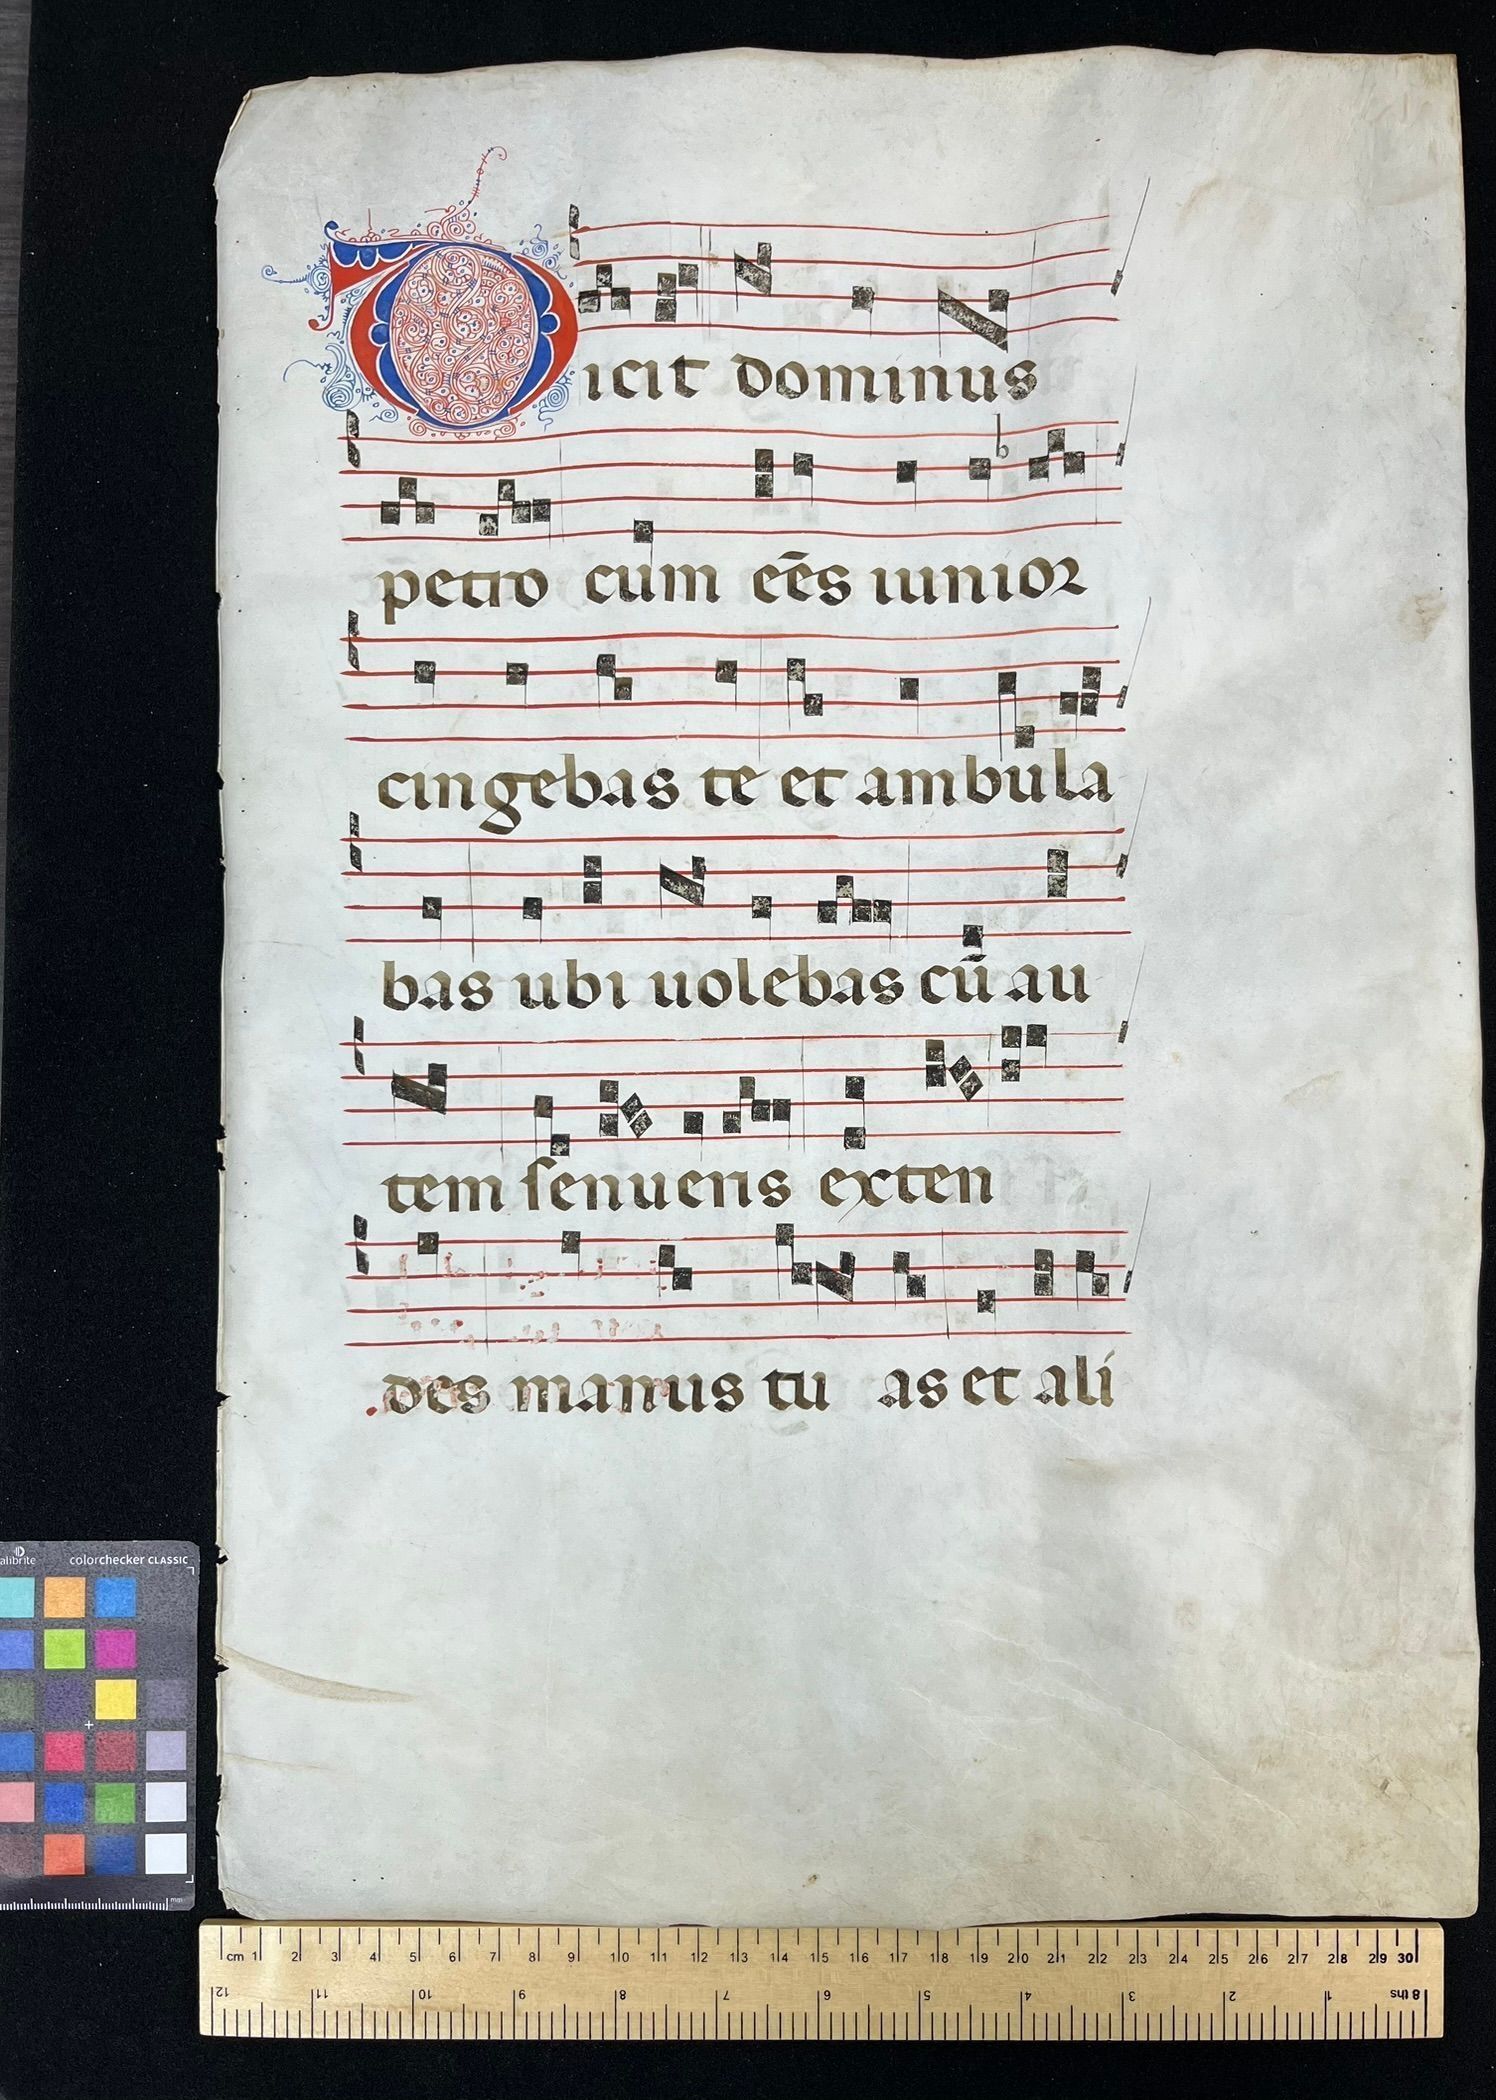 Dicit dominus
petro cum eēs iunior
cingebas te et ambula
bas ubi uolebas cū au
tem ſenueris exten
des manus tu as et ali
alibrite colorchecker CLASSIC
mm
cm 1 2 3 4 5 6 7 8 9 10 11 12 13 14 15 16 17 18 19 20 21 22 23 24 25 26 27 28 29 30
12 11 10 9 8 7 6 5 4 3 2 1 8 ths